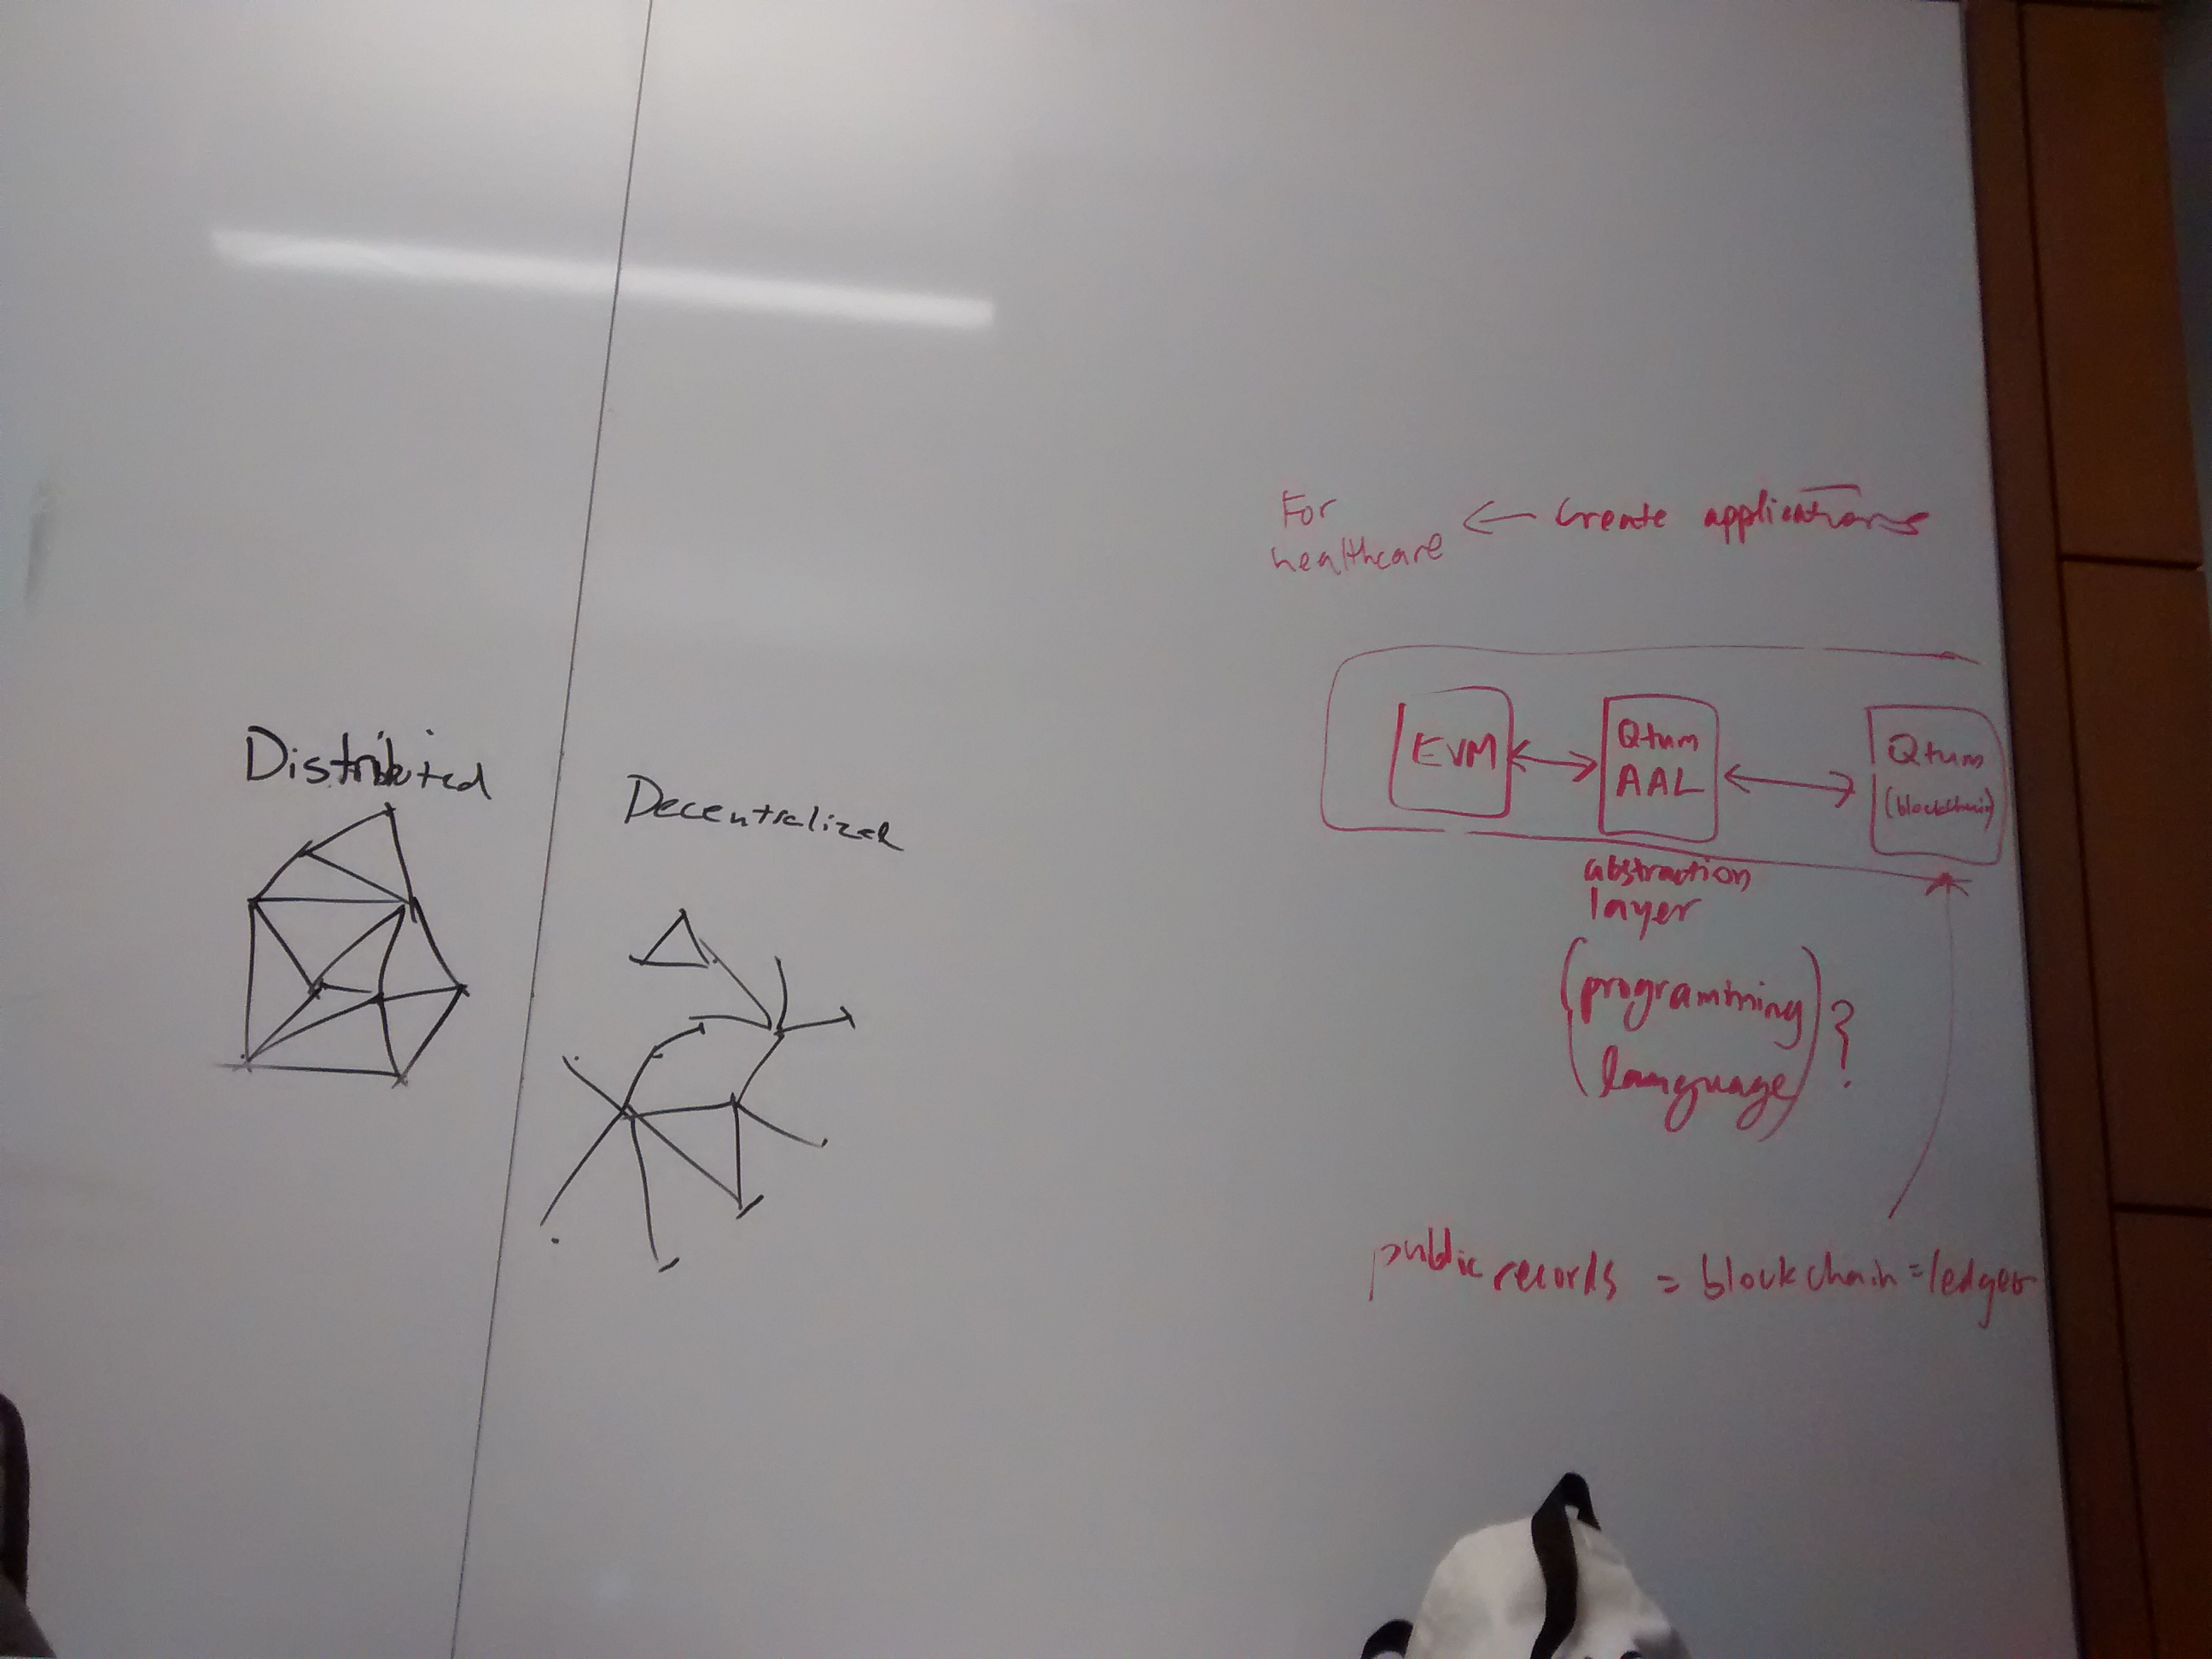 Distributed
Decentralized
For healthcare ← Create applications
EVM ↔ Qtum AAL ↔ Qtum (blockchain)
abstraction
layer
(programming
language)?
public records = blockchain = ledger